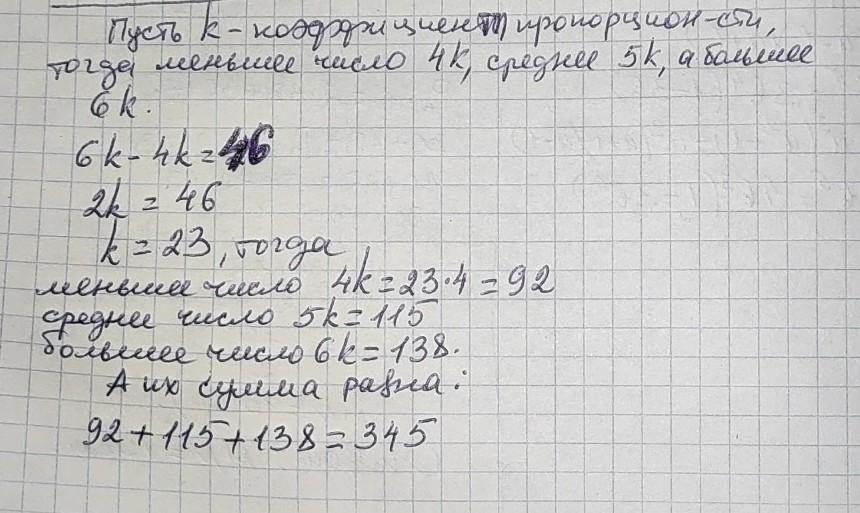 Пусть k - коэффициент пропорцион-сти,
тогда меньшее число 4k, среднее 5k, а большее
6k.
6k - 4k = 46
2k = 46
k = 23, тогда
меньшее число 4k = 23·4 = 92
среднее число 5k = 115
большее число 6k = 138.
А их сумма равна:
92 + 115 + 138 = 345